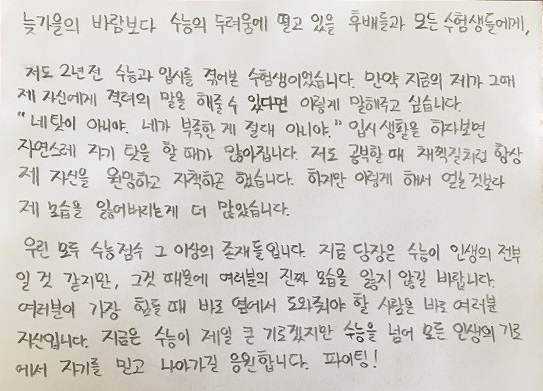 늦가을의 바람보다 수능의 두려움에 떨고 있을 후배들과 모든 수험생들에게,
저도 2년 전 수능과 입시를 겪어본 수험생이었습니다. 만약 지금의 제가 그때
제 자신에게 격려의 말을 해줄 수 있다면 이렇게 말해주고 싶습니다.
"네 탓이 아니야. 네가 부족한 게 절대 아니야." 입시 생활을 하다보면
자연스레 자기 탓을 할 때가 많아집니다. 저도 공부할 때 채찍질처럼 항상
제 자신을 원망하고 자책하곤 했습니다. 하지만 이렇게 해서 얻는 것보다
제 모습을 잃어버리는게 더 많았습니다.
우린 모두 수능점수 그 이상의 존재들입니다. 지금 당장은 수능이 인생의 전부
일 것 같지만, 그것 때문에 여러분의 진짜 모습을 잃지 않길 바랍니다.
여러분이 가장 힘들 때 바로 옆에서 도와줘야 할 사람은 바로 여러분
자신입니다. 지금은 수능이 제일 큰 기로겠지만 수능을 넘어 모든 인생의 기로
에서 자기를 믿고 나아가길 응원합니다. 파이팅!